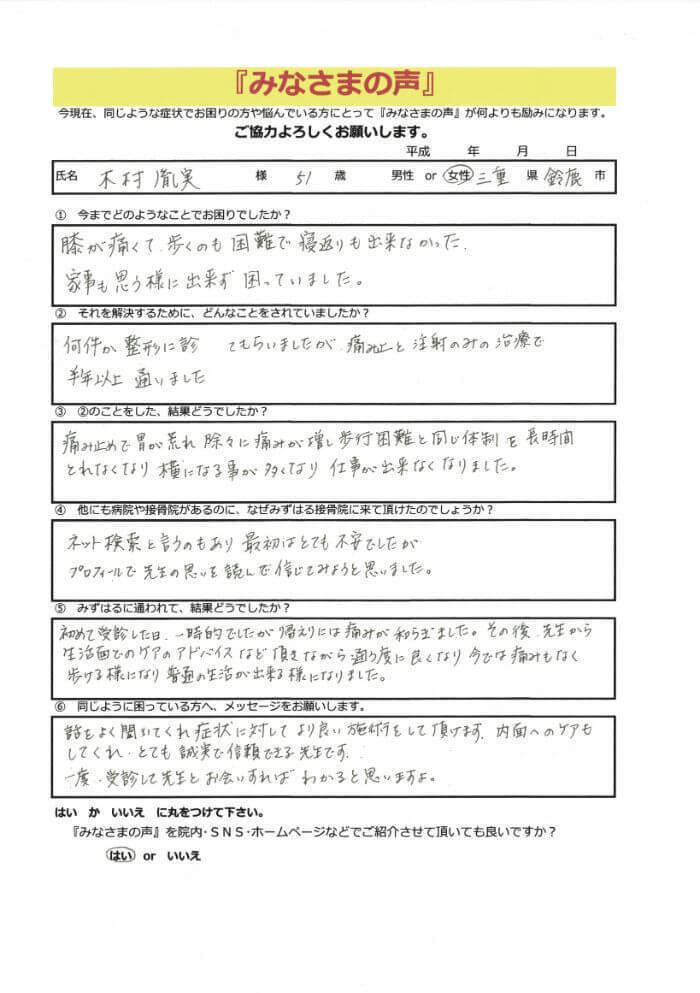 『みなさまの声』
今現在、同じような症状でお困りの方や悩んでいる方にとって『みなさまの声』が何よりも励みになります。
ご協力よろしくお願いします。
平成 年 月 日
氏名 木村 胤実 様 51 歳 男性 or 女性 三重 県 鈴鹿 市
① 今までどのようなことでお困りでしたか？
膝が痛くて、歩くのも困難で寝返りも出来なかった。
家事も思う様に出来ず困っていました。
② それを解決するために、どんなことをされていましたか？
何件か整形に診 てもらいましたが、痛み止と注射のみの治療で
半年以上 通いました
③ ②のことをした、結果どうでしたか？
痛み止めで胃が荒れ 除々に痛みが増し歩行困難と同じ体制を長時間
とれなくなり 横になる事が多くなり 仕事が出来なくなりました。
④ 他にも病院や接骨院があるのに、なぜみずはる接骨院に来て頂けたのでしょうか？
ネット検索と言うのもあり 最初はとても不安でしたが
プロフィールで先生の思いを読んで信じてみようと思いました。
⑤ みずはるに通われて、結果どうでしたか？
初めて受診した日、一時的でしたが帰えりには痛みが和らぎました。その後、先生から
生活面でのケアのアドバイスなど頂きながら通う度に良くなり 今では痛みもなく
歩ける様になり普通の生活が出来る様になりました。
⑥ 同じように困っている方へ、メッセージをお願いします。
話をよく聞いてくれ症状に対してより良い施術をして頂けます。内面へのケアも
してくれ、とても誠実で信頼できる先生です。
一度、受診して先生とお会いすればわかると思いますよ。
はい か いいえ に丸をつけて下さい。
『みなさまの声』を院内・ＳＮＳ・ホームページなどでご紹介させて頂いても良いですか？
はい or いいえ